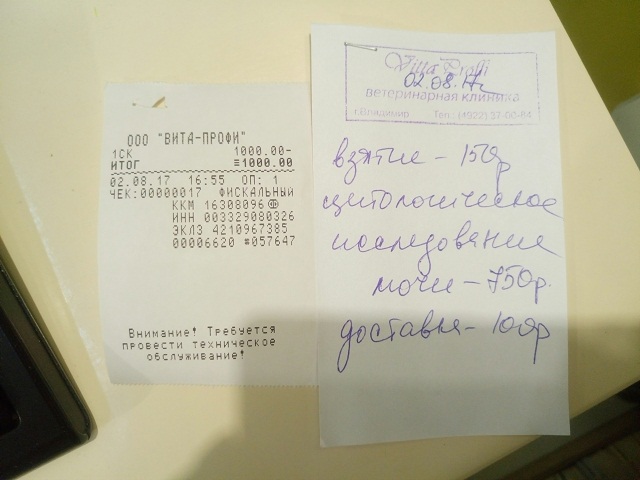 ООО "ВИТА-ПРОФИ"
1СК 1000.00-
ИТОГ ≡1000.00
02.08.17 16:55 ОП: 1
ЧЕК:00000017 ФИСКАЛЬНЫЙ
ККМ 16308096
ИНН 003329080326
ЭКЛЗ 4210967385
00006620 #057647
Внимание! Требуется
провести техническое
обслуживание!
Vitta Proffi
02.08.17г
ветеринарная клиника
г.Владимир Тел.: (4922) 37-00-84
взятие - 150р
цитологическое
исследование
мочи - 750р.
доставка - 100р